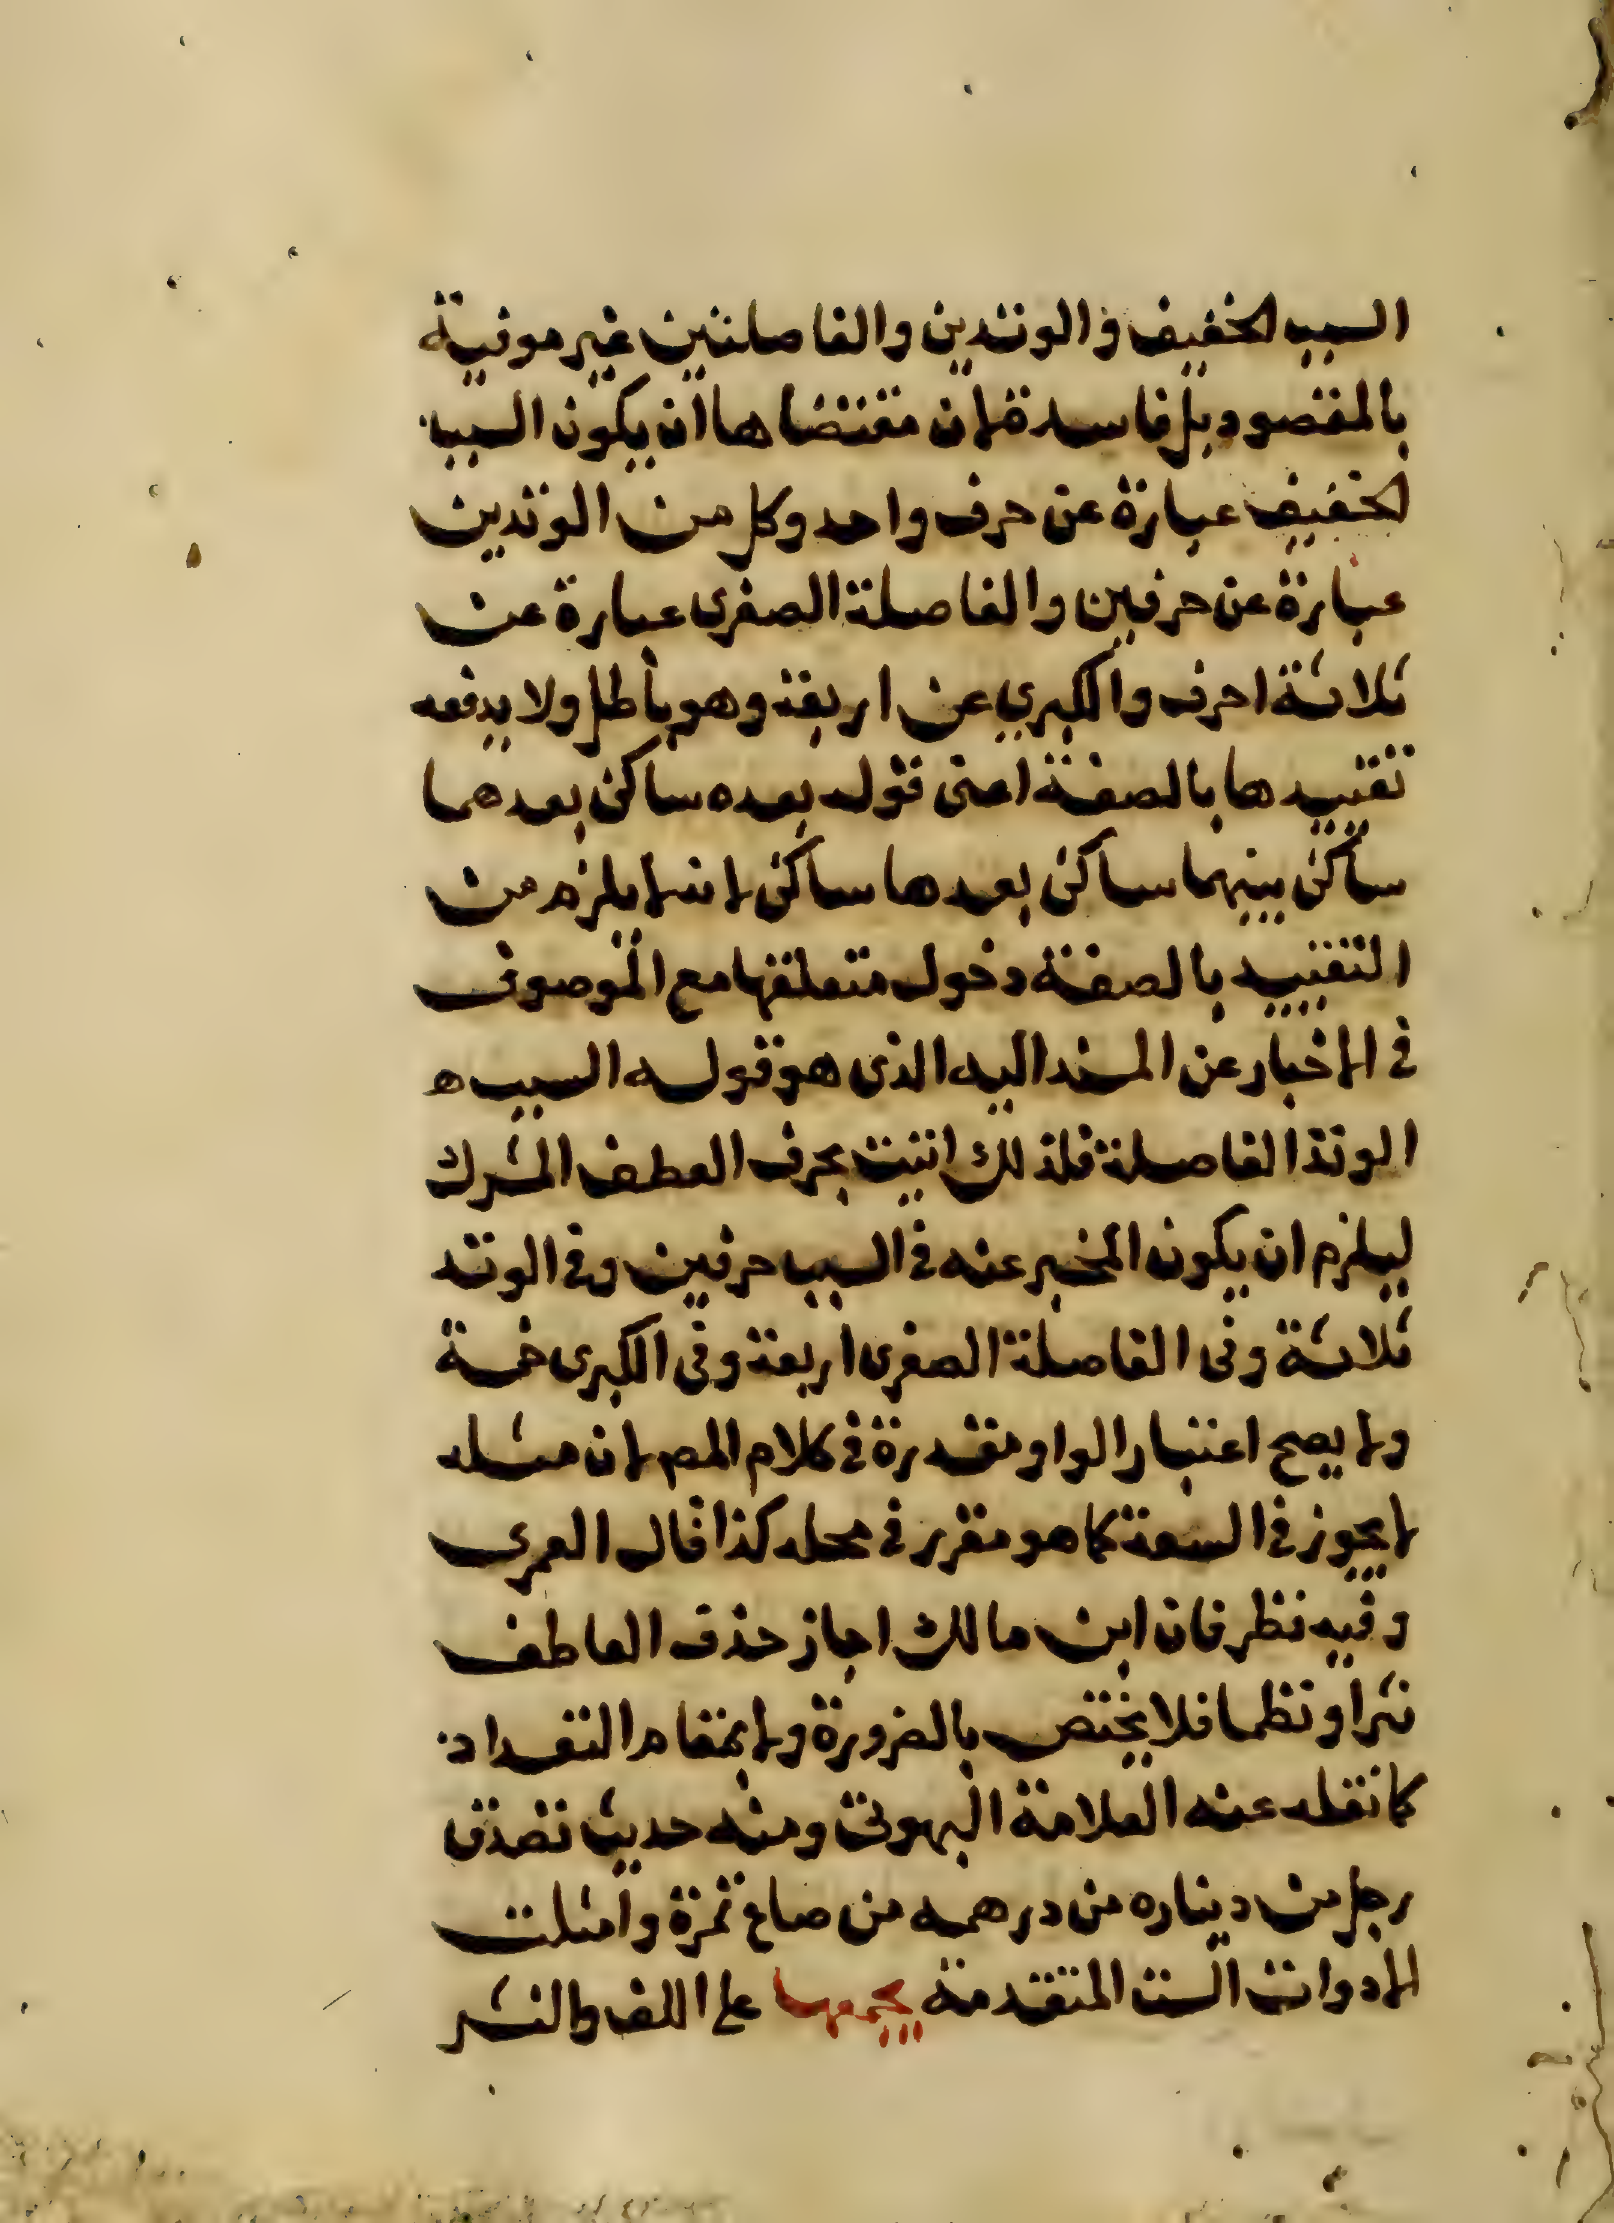 السبب الخفيف والوتدين والفاصلتين غير موفية
بالمقصود بل فاسدة لان مقتضاها ان يكون السبب
الخفيف عبارة عن حرف واحد وكل من الوتدين
عبارة عن حرفين والفاصلة الصغرى عبارة عن
ثلاثة احرف والكبري عن اربعة وهو باطل ولا يدفعه
تقييدها بالصفة اعنى قوله بعده ساكن بعدهما
ساكن بينهما ساكن بعدها ساكن لانه لا يلزم من
التقييد بالصفة دخول متعلقها مع الموصوف
في الاخبار عن المسند اليه الذى هو قوله السبب ه
الوتد الفاصلة فلذلك اتيت بحرف العطف المشرك
ليلزم ان يكون المخبر عنه في السبب حرفين وفي الوتد
ثلاثة وفى الفاصلة الصغرى اربعة وفى الكبرى خمسة
ولا يصح اعتبار الواو مقدرة في كلام المص لان مثله
لا يجوز في السعة كما هو مقرر في محله كذا قال العمرى
وفيه نظر فان ابن مالك اجاز حذف العاطف
نثرا ونظما فلا يختص بالضرورة ولا بمقام التعداد
كما نقله عنه العلامة البهوتى ومنه حديث تصدق
رجل من ديناره من درهمه من صاع تمرة وامثلت
الادوات الست المتقدمة يجمعها على اللف والنشر